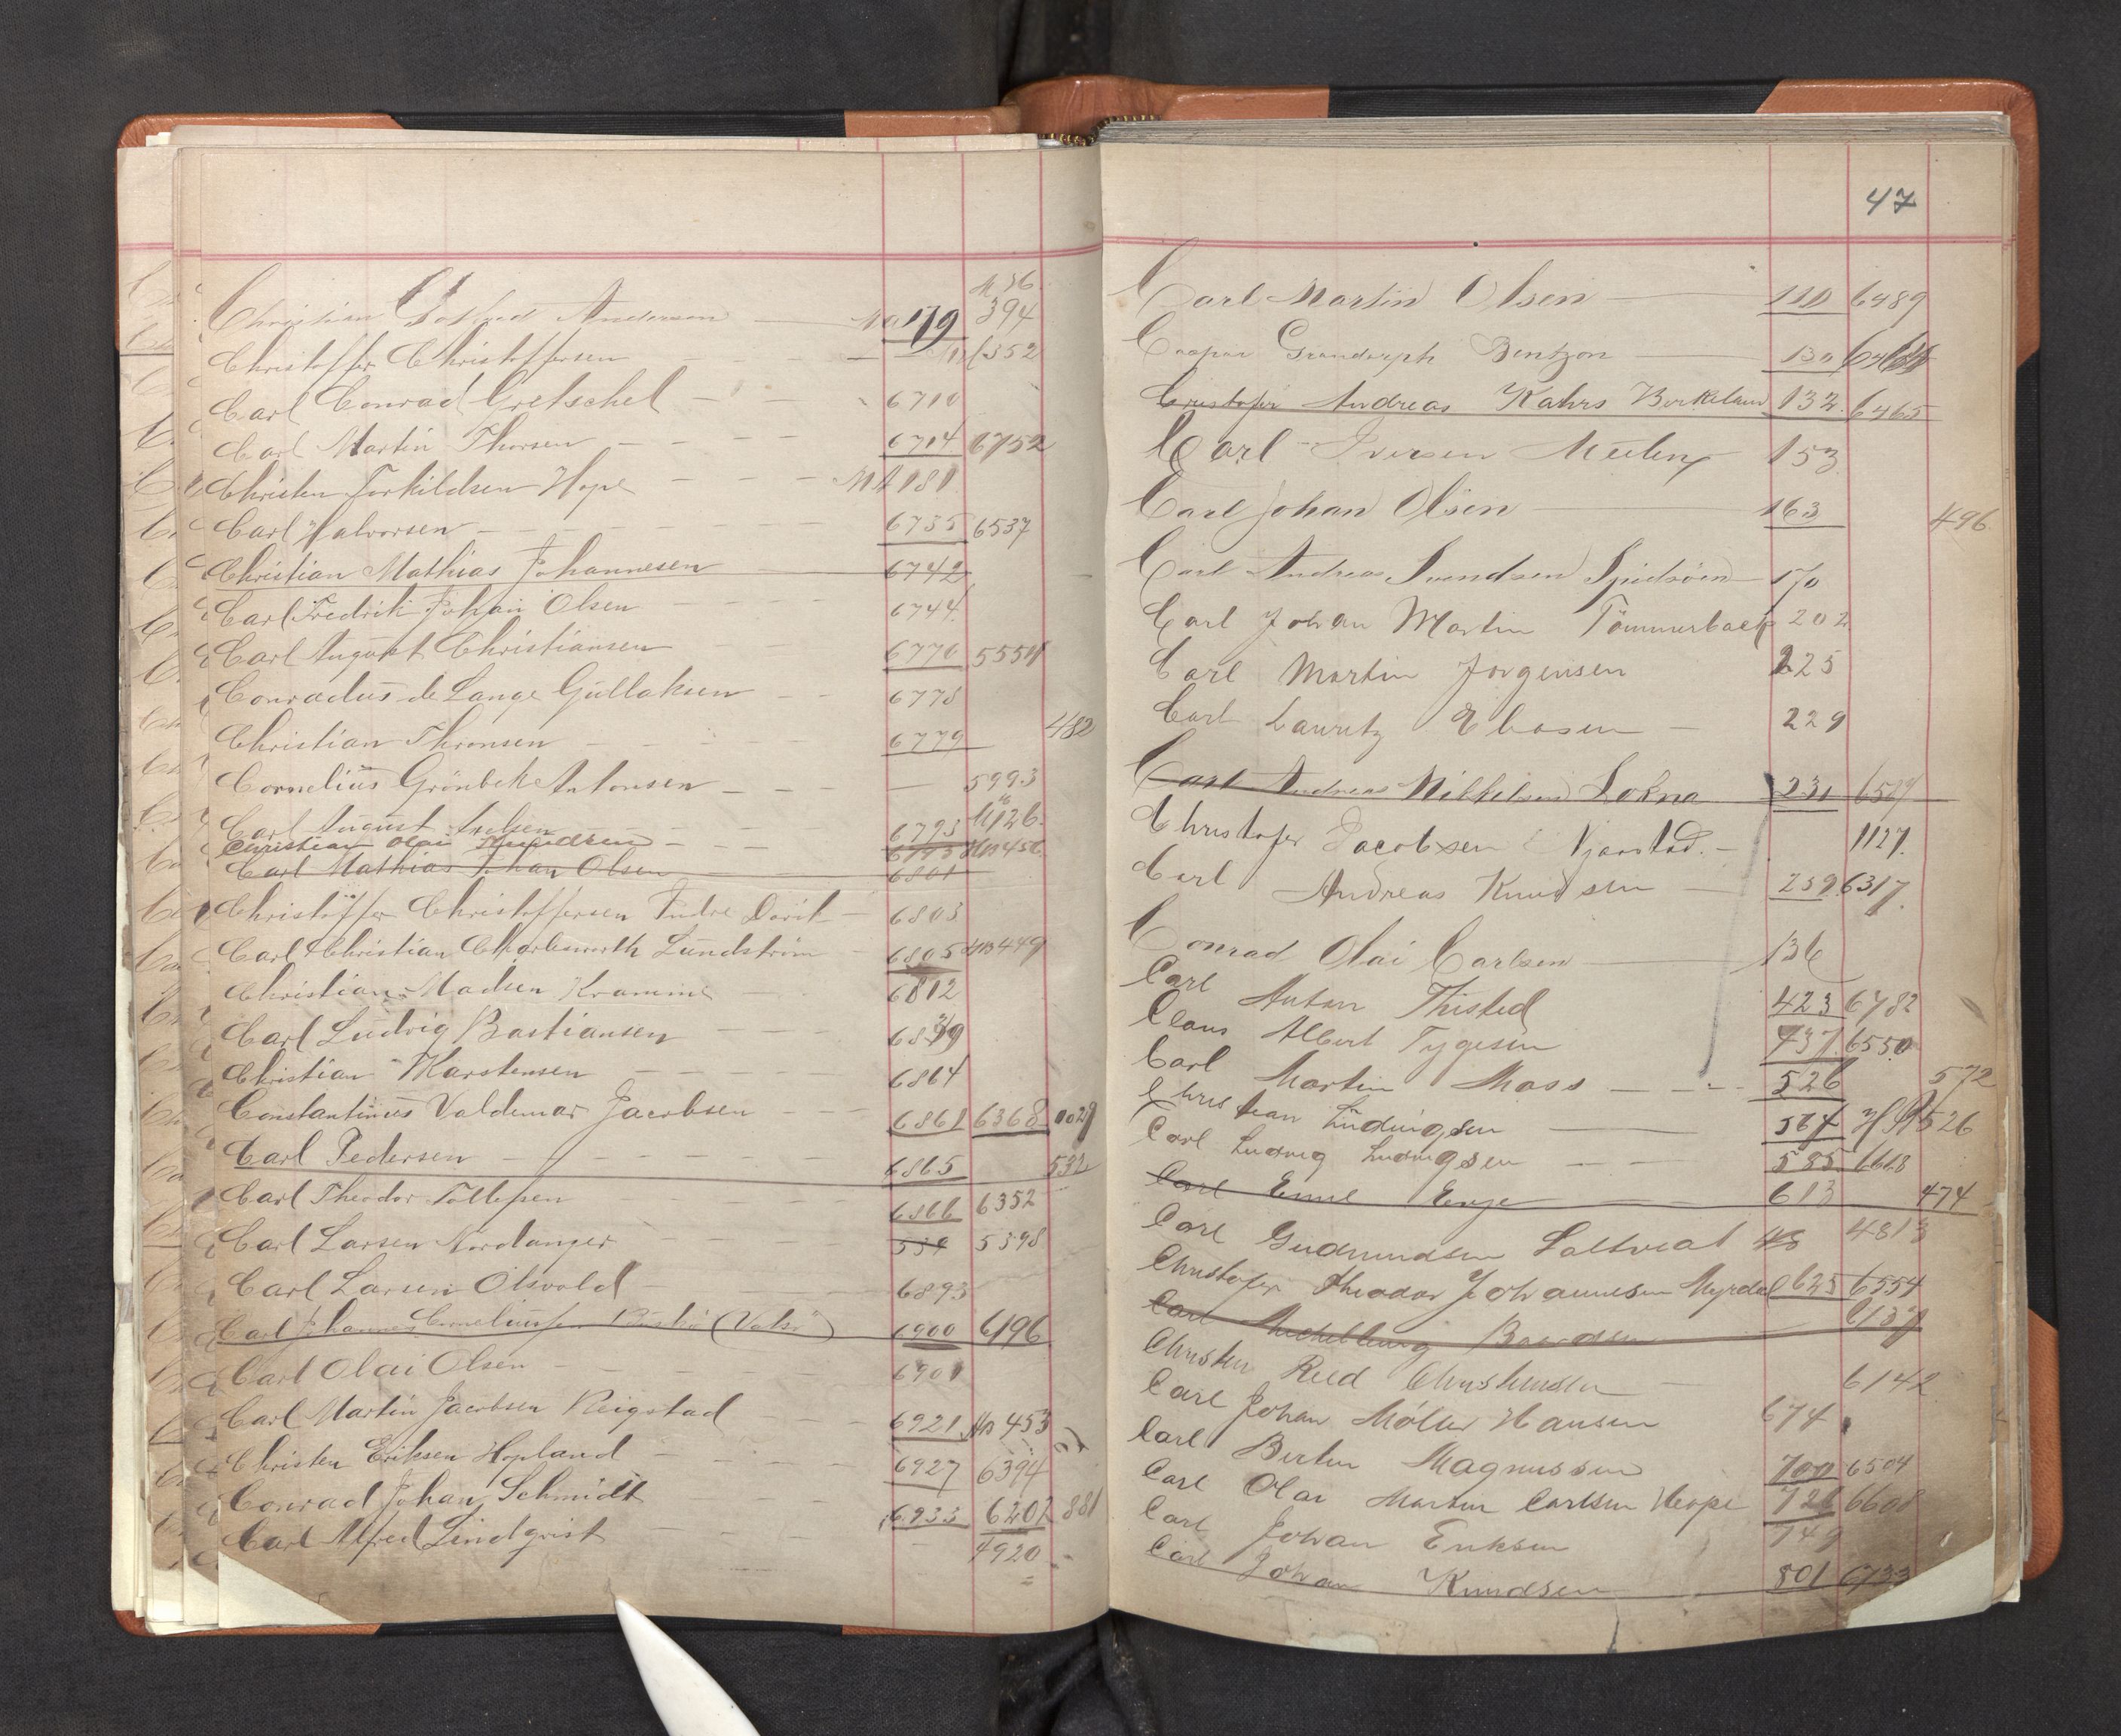 M 36
Christian Gothard Andersen No 119 394
Christoffer Christoffersen 6352
Carl Conrad Gretschel 6710
Carl Martin Thorsen 6714 6752
Christen Torkildsen Hope 181
Carl Halvorsen 6735 6537
Christian Mathias Johannesen 6742
Carl Fredrik Johan Olsen 6744
Carl August Christiansen 6770 5554
Conradus de Lange Gullaksen 6778
Christian Thronsen 6779 482
Cornelius Grönbek Antonsen 5993
Carl August 6793 126
Christian Olai Knudsen
Carl Mathias Johan Olsen 6801
Christoffer Christoffersen Indre 6803
Carl Christian Lundström 6805 449
Christian Madsen 6812
Carl Ludvig Bastiansen
Christian Karstensen 6864
Constantinus Valdemar Jacobsen 6861 6368
Carl Pedersen 6865 532
Carl Theodor Tollefsen 6866 6352
Carl Larsen Nordanger 539 5398
Carl Larsen Olsvold 6893
Carl Johannes Corneliussen 6900 6196
Carl Olai Olsen 6901
Carl Martin Jacobsen Reigstad 6921 453
Christen Eriksen Hopland 6927 6394
Conrad Johan Schmidt 6933 6202 881
Carl Alfred Lindqvist 4920
47
Carl Martin Olsen 110 6489
Caspar Grandorph Bentzon 130
Cristofer Andreas Kahrs Birkeland 132 6465
Carl Iversen 153
Carl Johan Olsen 163 496
Carl Andreas Svendsen 170
Carl Johan Martin Tömmerbach 202
Carl Martin Jorgensen 225
Carl Lauritz 229
Carl Andreas Mikkelsen Lokna 231
Christofer Jacobsen 1127
Carl Andreas Knudsen 259 6317
Conrad Olai Carlsen 136
Carl Anton Thisted 423 6782
Claus Albert Tygesen 437 6550
Carl Martin Mass 526 572
Christian Ludvigsen 564 526
Carl Ludvig Ludvigsen 585 6618
Carl Emil 613 474
Carl Gudmundsen Saltveat 48 4813
Christofer Theodor Johannesen Myrdal 625 6554
Carl 6137
Christen Reed Christensen 6142
Carl Johan Møller Hansen 674
Carl Bertin Magnussen 700 6504
Carl Olai Martin Carlsen Hope 726 6608
Carl Johan Eriksen 749
Carl Johan Knudsen 801 6733